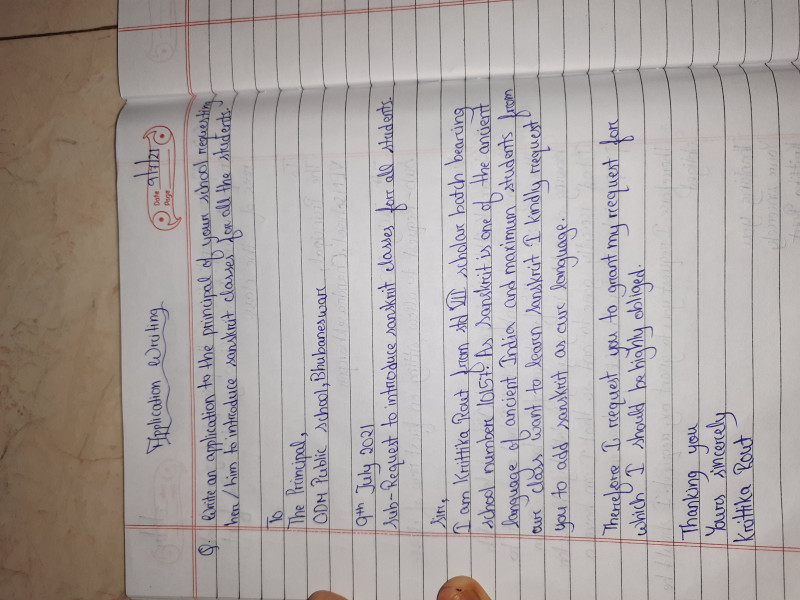 Date 9/7/21
Page
Application Writing
Q. Write an application to the principal of your school requesting
her/him to introduce sanskrit classes for all the students.
To
The Principal,
ODM Public school, Bhubaneswar
9th July 2021
Sub-Request to introduce sanskrit classes for all students.
Sir,
I am Krittika Rout from std VII scholar batch bearing
school number 1057. As Sanskrit is one of the ancient
language of ancient India and maximum students from
our class want to learn sanskrit I kindly request
you to add sanskrit as our language.
Therefore I request you to grant my request for
which I should be highly obliged.
Thanking you
Yours sincerely
Krittika Rout